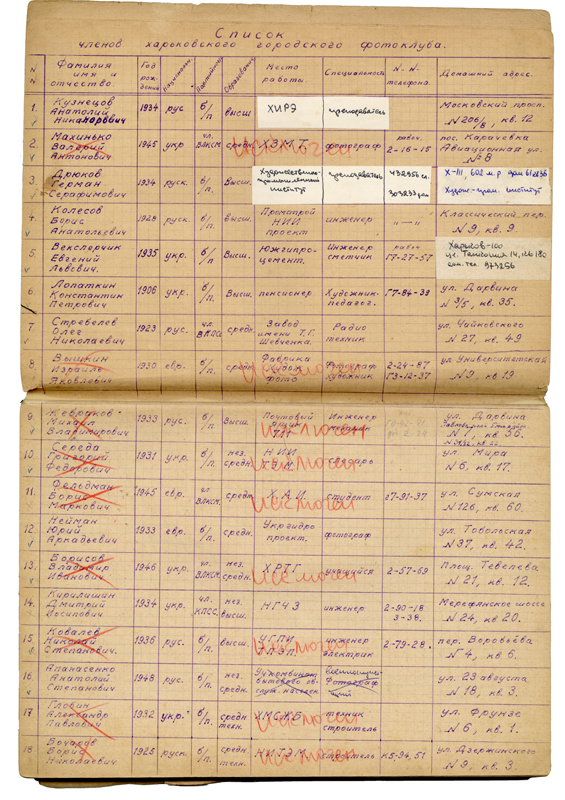 Список
членов харьковского городского фотоклуба.
N N Фамилия имя и отчество Год рождения Национальн. Партийн. Образование Место работы Специальность N-N телефона. Домашний адрес.
1. Кузнецов Анатолий Никанорович 1934 рус б/п высш. ХИРЭ преподаватель Московский просп. N 206/8, кв. 12
2. Махинько Валерий Антонович 1945 укр чл. ВЛКСМ. средн. ХЗМТ. фотограф рабоч. 2-16-15 пос. Карачевка Авиационная ул. №8 исключен
3. Дрюков Герман Серафимович 1934 русск. б/п Высш. Художественно-промышленный институт преподаватель Худож.-пром. институт
4. Колесов Борис Анатольевич 1928 русск б/п высш. Промстрой НИИ проект инженер —"— Классический пер. N 9, кв. 9.
5. Векслерчик Евгений Львович. 1935 укр. б/п высш. Южгипроцемент. Инженер сметчик рабоч Г7-27-57 Харьков-100
6. Лопаткин Константин Петрович 1906 укр. б/п Высш. пенсионер Художник-педагог. Г7-84-39 ул. Дарвина N 3/5, кв. 35.
7 Стревелев Олег Николаевич 1923 рус. чл. средн. Завод имени Т.Г. Шевченка. Радио техник ул. Чайковского N 27, кв. 49
8. Вышкин Израиль Яковлевич 1930 евр. б/п средн Фабрика худож. фото Фотограф художник 2-24-87 Г3-12-37 ул Университетская N 9. кв 19 исключен
9. Михаил Владимирович 1933 рус. б/п Высш. Почтовый ящик Инженер ул. Дарвина исключен
10 Середа Григорий Федорович 1931 укр. б/п нез. средн. НИИ ул. Мира N 6, кв. 17. исключен
11. Фельдман Борис Маркович 1945 евр. чл ВЛКСМ. средн ХАИ. студент 27-91-37 ул. Сумская N 126, кв. 60. исключен
12. Нейман Юрий Аркадьевич 1933 евр. б/п средн. Укргидро проект. фотограф ул. Тобольская N 37, кв. 42.
13. Борисов Владимир Иванович 1946 укр чл. ВЛКСМ. нез. средн. ХРТГ учащийся 2-57-69 Площ. Тевелева N 21, кв. 12. исключен
14. Кирилишин Дмитрий Иосипович 1934 укр чл. КПСС. нез. высш. НГЧ3 инженер 2-90-18 3-38. Мерефянское шоссе N 24, кв 20.
15 Ковалев Николай Степанович. 1936 рус. б/п высш. инженер электрик 2-79-28. пер. Воробьёва N 4, кв 6. исключен
16 Апанасенко Анатолий Степанович 1948 рус. б/п нез. средн. Фотограф ул. 23 августа N 18, кв. 3.
17 Глобин Александр Павлович 1932 укр. б/п. средн техн. техник строитель ул. Фрунзе N 6, кв. 1. исключен
18 Бочаров Борис Николаевич 1925 русск. б/п. средн. техн. строитель К5-94, 51 ул. Дзержинского N 9. кв. 3. исключен